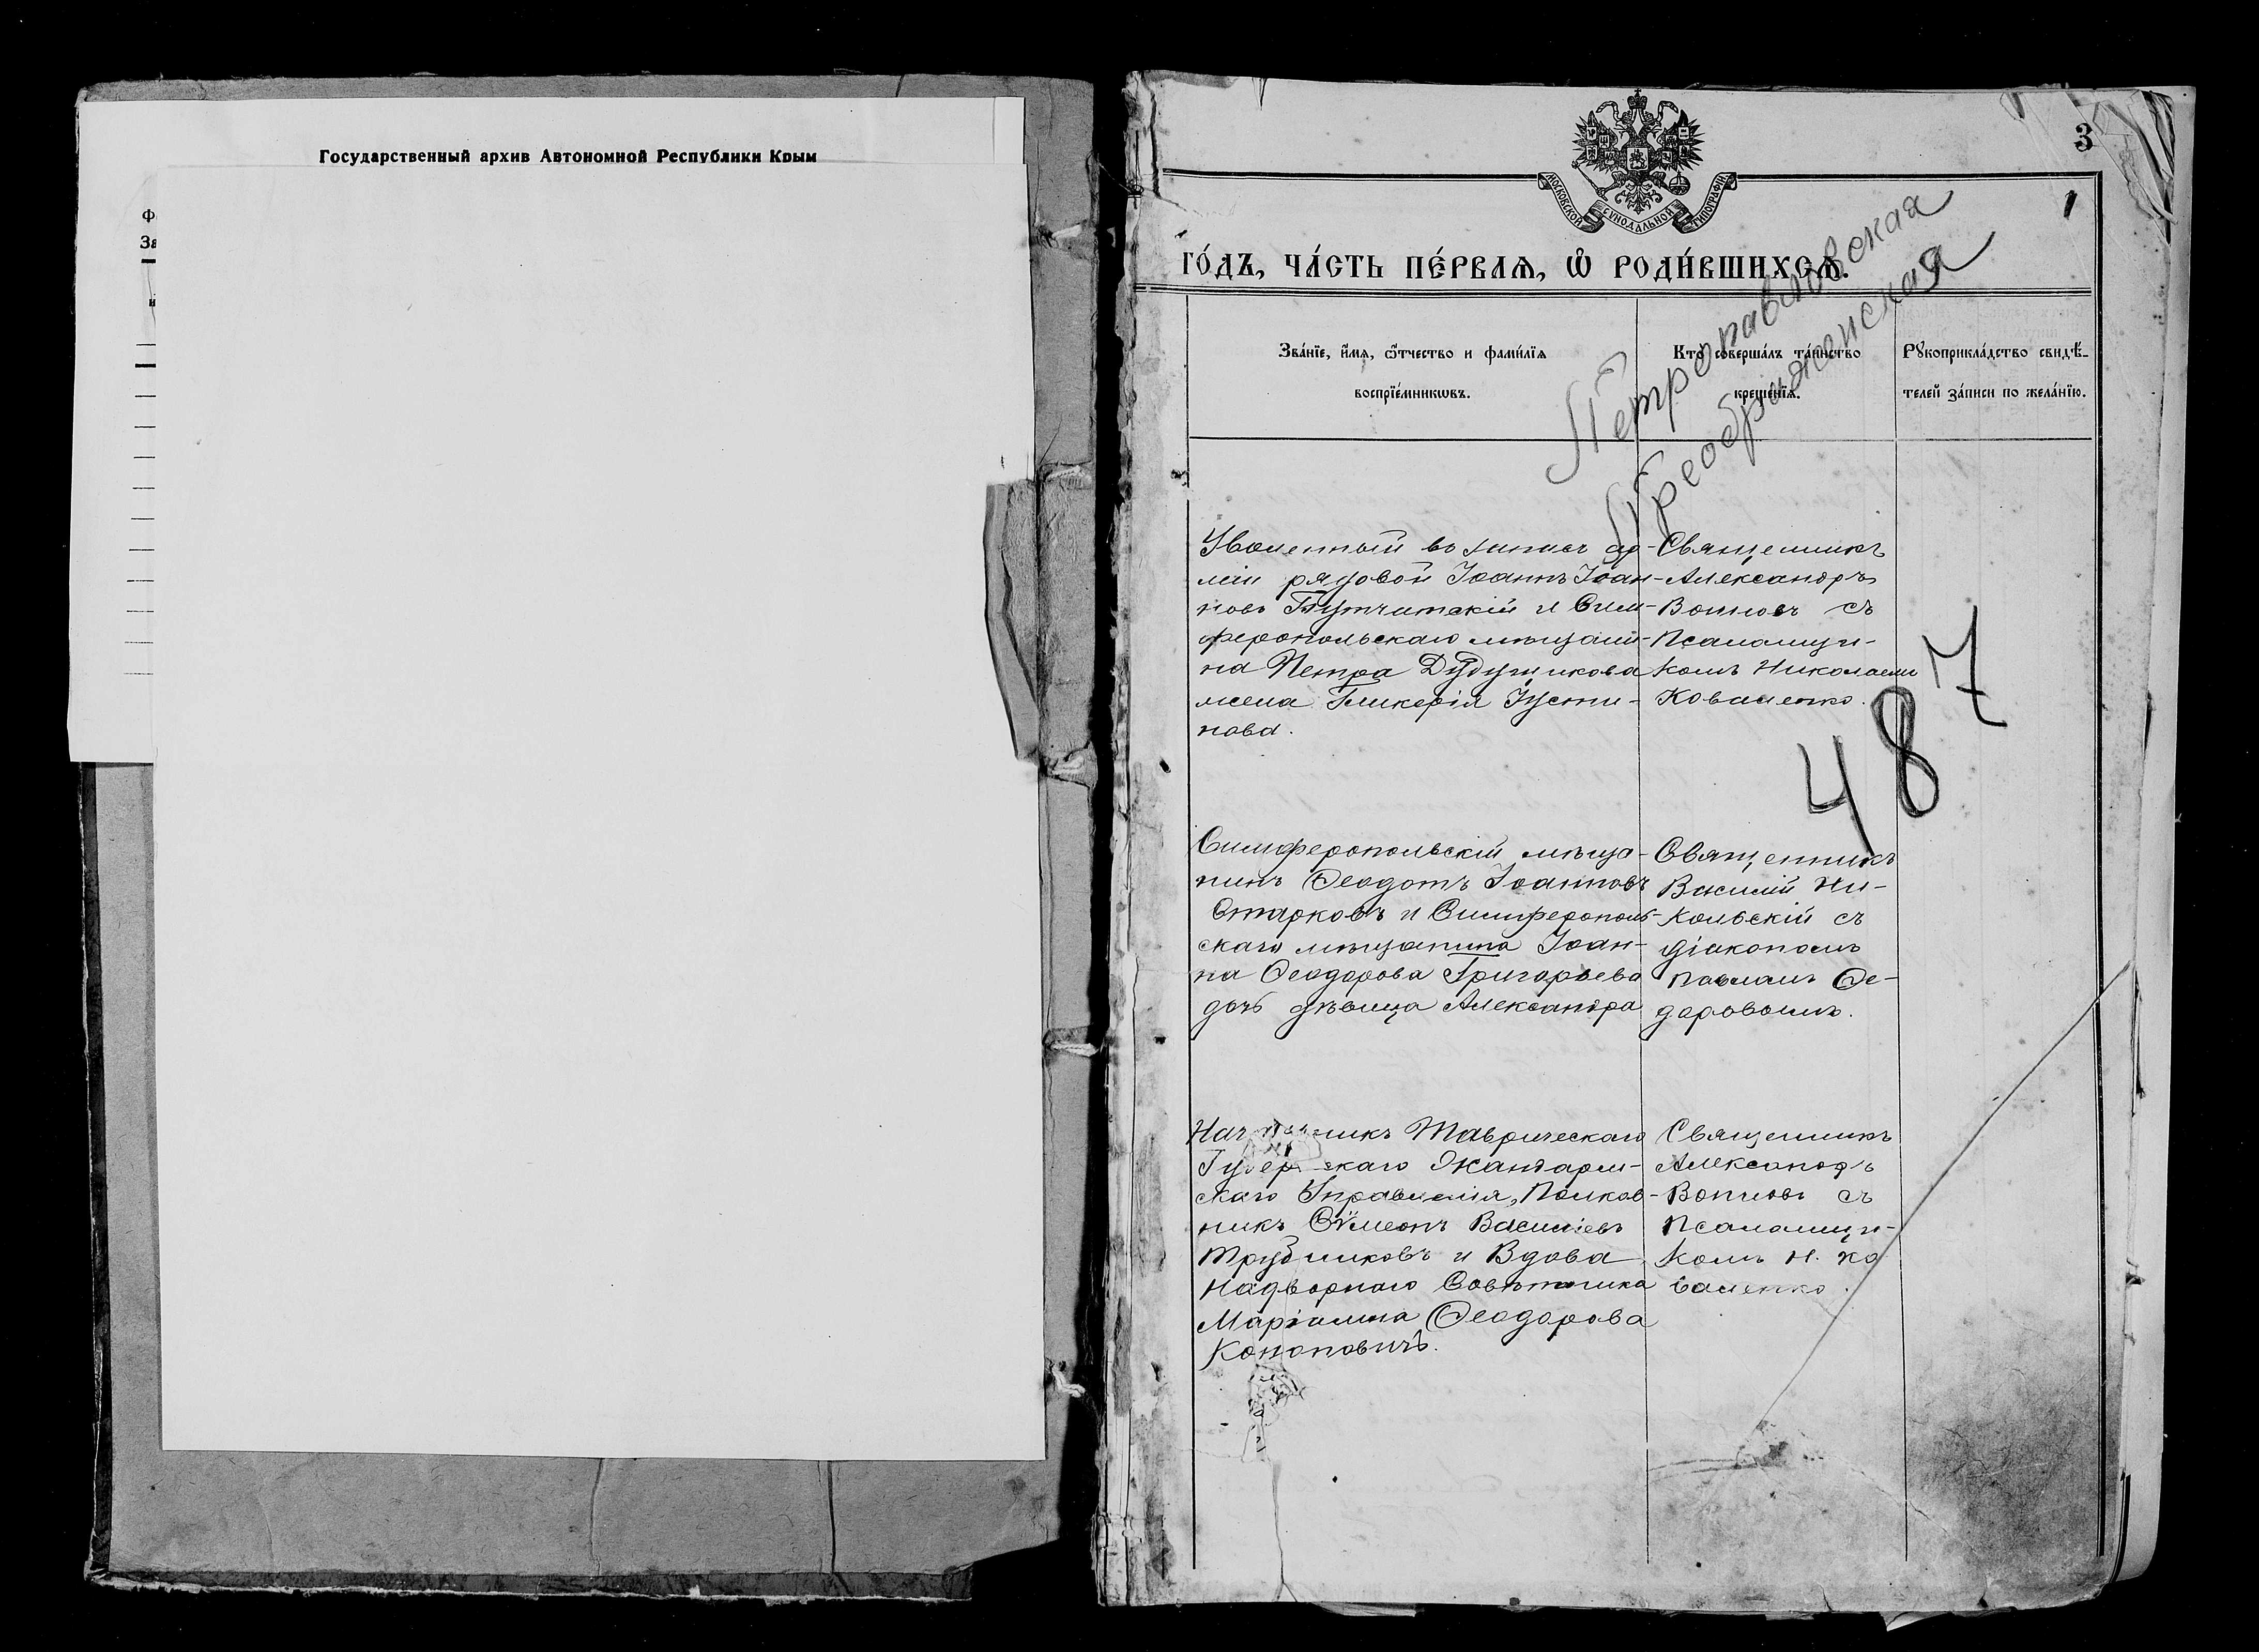 Государственный архив Автономной Республики Крым
Ф
За
3
1
МОСКОВСКОЙ СУНОДАЛЬНОЙ ТИПОГРАФІИ
Петропавловская
Преображенская
ГО́ДЪ, ЧА́СТЬ ПЕ́РВАѦ, Ѽ РОДИ́ВШИХСѦ.
Зва́нїе, и҆́мѧ, ѻ҆́тчество и фами́лїѧ
воспрїе́мникѡвъ.
Кто̀ соверша́лъ та́инство
креще́нїѧ.
Рꙋкоприкла́дство свидѣ́-
телей за́писи по жела́нїю.
Уволенный въ запасъ ар-
міи рядовой Іоаннъ Іоан-
новъ и Сим-
феропольскаго мѣщани-
на Петра Дудушкова
жена Гликерія Іусти-
нова.
Священникъ
Александръ
съ
Псаломщи-
комъ Николаемъ
Коваленко.
7
48
Симферопольскій мѣща-
нинъ Ѳеодотъ Іоанновъ
Старковъ и Симферополь-
скаго мѣщанина Іоан-
на Ѳеодорова Григорьева
дочь дѣвица Александра
Священникъ
Василій Ни-
кольскій съ
діакономъ
Павломъ Ѳе-
доровымъ.
Нач никъ Таврическаго
Губер скаго Жандарм-
скаго Управленія, Полков-
никъ Сѵмеонъ Василіевъ
Трубниковъ и Вдова
Надворнаго Совѣтника
Маріамна Ѳеодорова
Кононовичъ.
Священникъ
Александръ
съ
Псаломщи-
комъ Н. Ко
валенко.